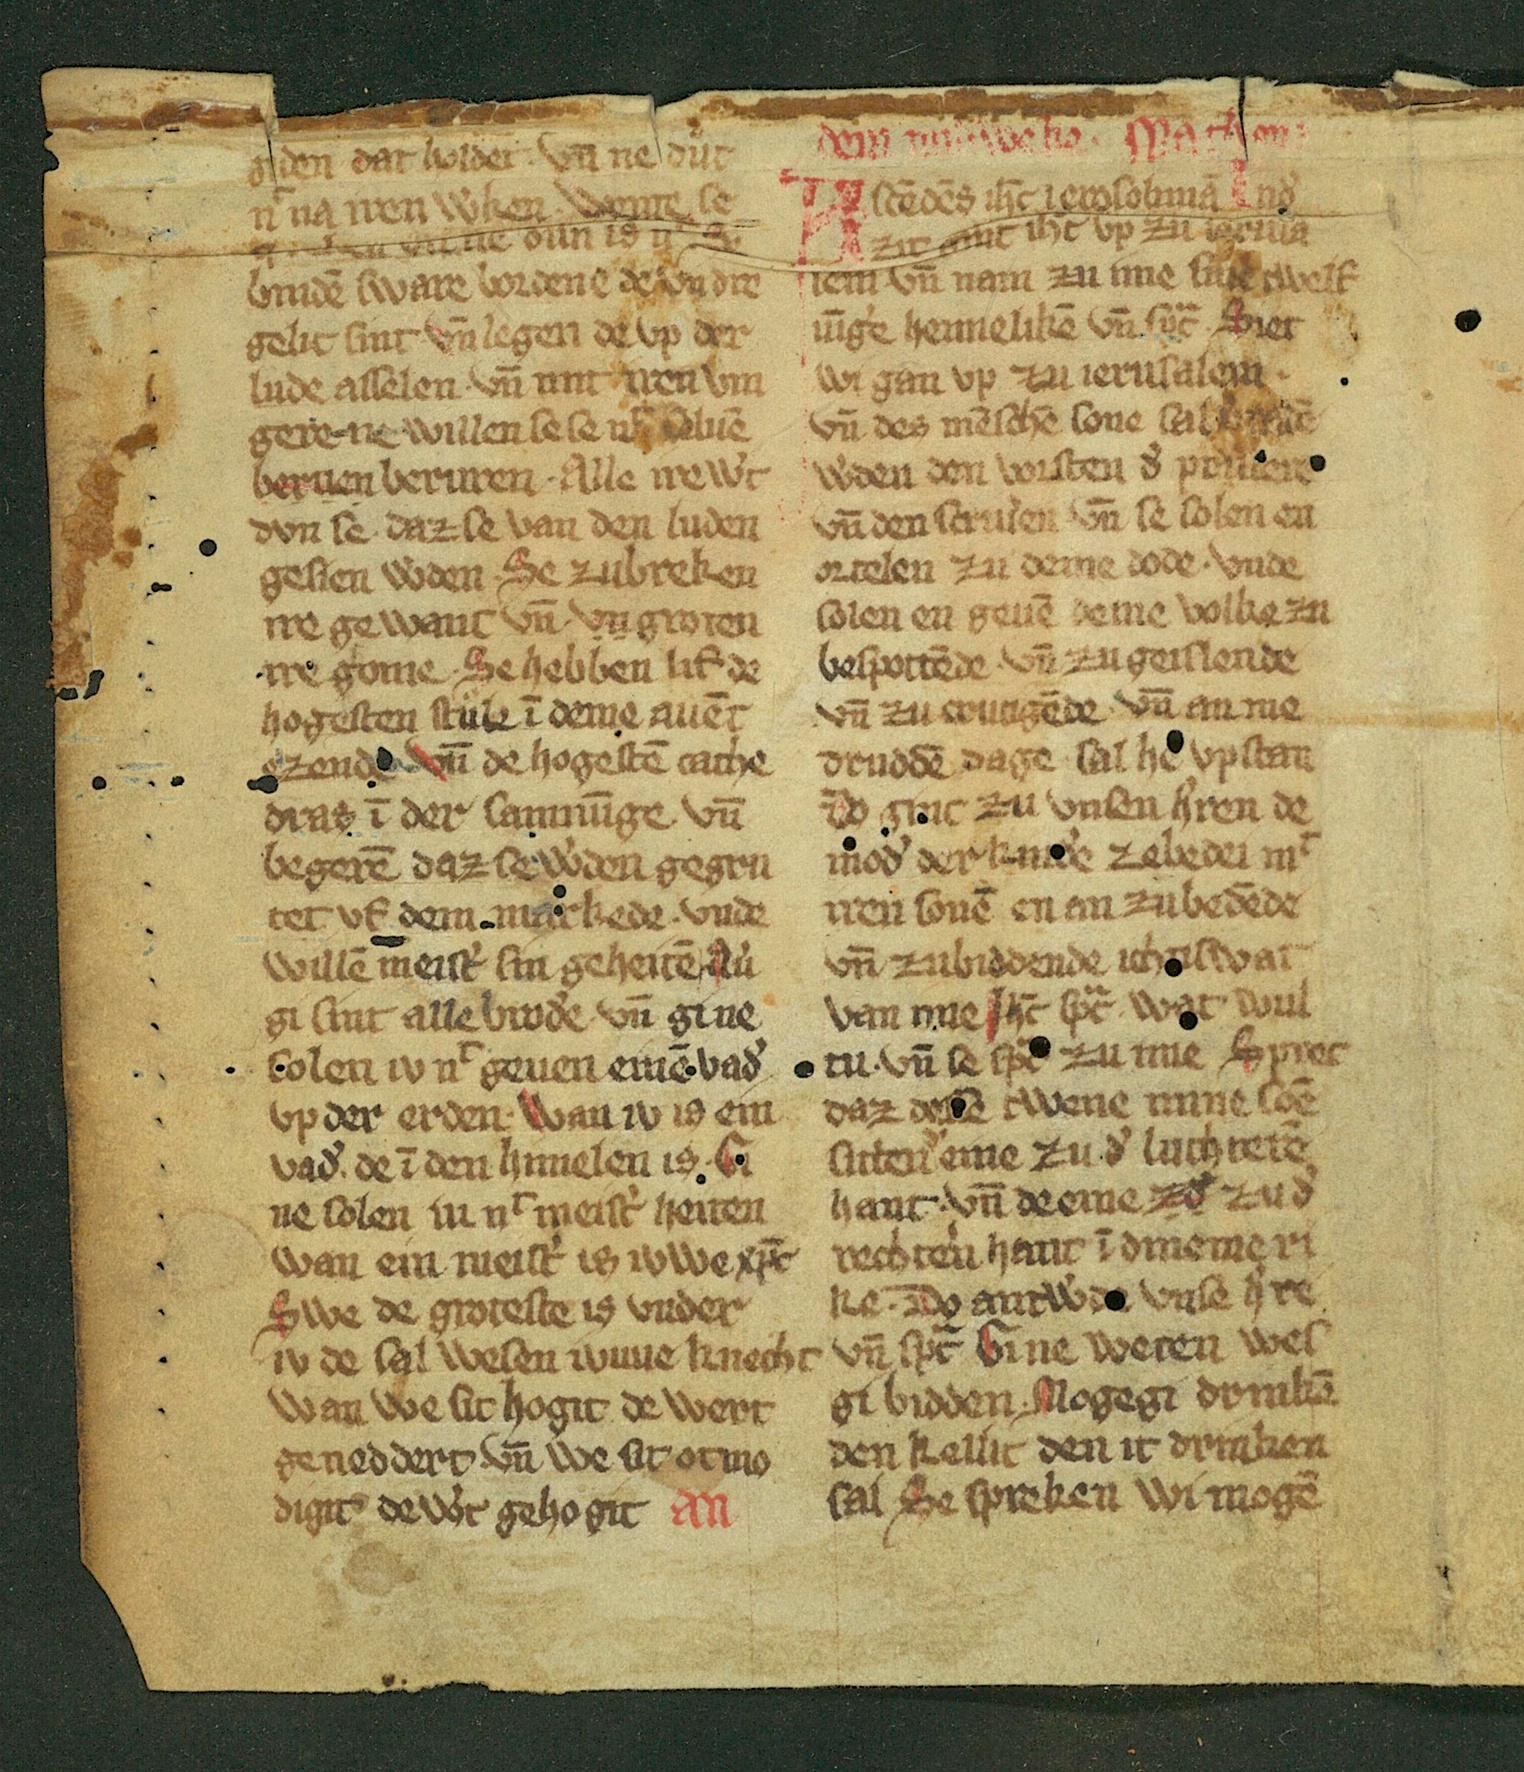 giden dat holdet · vn̄ ne dut
nͭ na iren w̕ken · wante se
bindē sware bordene de vndre
gelic sint vn̄ legen de vp der
lude asselen · vn̄ mit iren vin
gere ne willen se se nͭ seluē
beruen beruren · Alle ire w̕c
dvn se · daz se van den luden
gesien w̕den · Se zubreken
ire gewant vn̄ vn groten
ire gome · Se hebben lif de
hogesten stule ī deme auēt
ezende vn̄ de hogestē cathe
dras ī der samnūge vn̄
begerē daz se w̕den gegru
tet vf dem markede · vnde
willē meist̕ sin geheitē Auͥ
gi sint alle brod̕e vn̄ gi ne
solen iv nͭ geuen einē vad̕
vp der erden · Wan iv is ein
vad̕ · de ī den himelen is · Gi
ne solen iu nͭ meist̕ heiten
wan ein meist̕ is iwe xp̄c
Swe de groteste is vnder
iv de sal wesen iwue knecht
wan we sic hogit de wert
geneddert vn̄ we sic otmo
digit de w̕t gehogit an
dem mitweke · Matheus
Ascēdēs ih̄c ierosolimā In d̕
zit ginc ih̄c vp zu ierusa
lem vn̄ nam zu ime sine twelf
iūg̕e heimelikē vn̄ sp̄c · Siet
wi gan vp zu ierusalem ·
vn̄ des mēschē sone sal
w̕den den vorsten d̕ pristere
vn̄ den scriuēn vn̄ se solen en
ortelen zu deme dode · vnde
solen en geuē deme volke zu
bespottēde vn̄ zu geislende
vn̄ zu crucigēde vn̄ an me
druddē dage sal he vpstan
Do ginc zu vnsen h̕ren de
mod̕ der kind̕e zebedei mͭ
iren sonē en an zubedēde
vn̄ zubiddende ichtiswat
van ime Ih̄c sp̄c · wat wul
tu · vn̄ se sp̄c zu ime Sprec
daz dese twene mine sōe
sitten eine zu d̕ luchterē
hant · vn̄ de eine zu d̕
rechten hant ī dineme ri
ke · Do antw̕de vnse h̕re
vn̄ sp̄c Gi ne weten wes
gi bidden · Mogegi drinkē
den kellic den ic drinken
sal Se spreken wi mogē